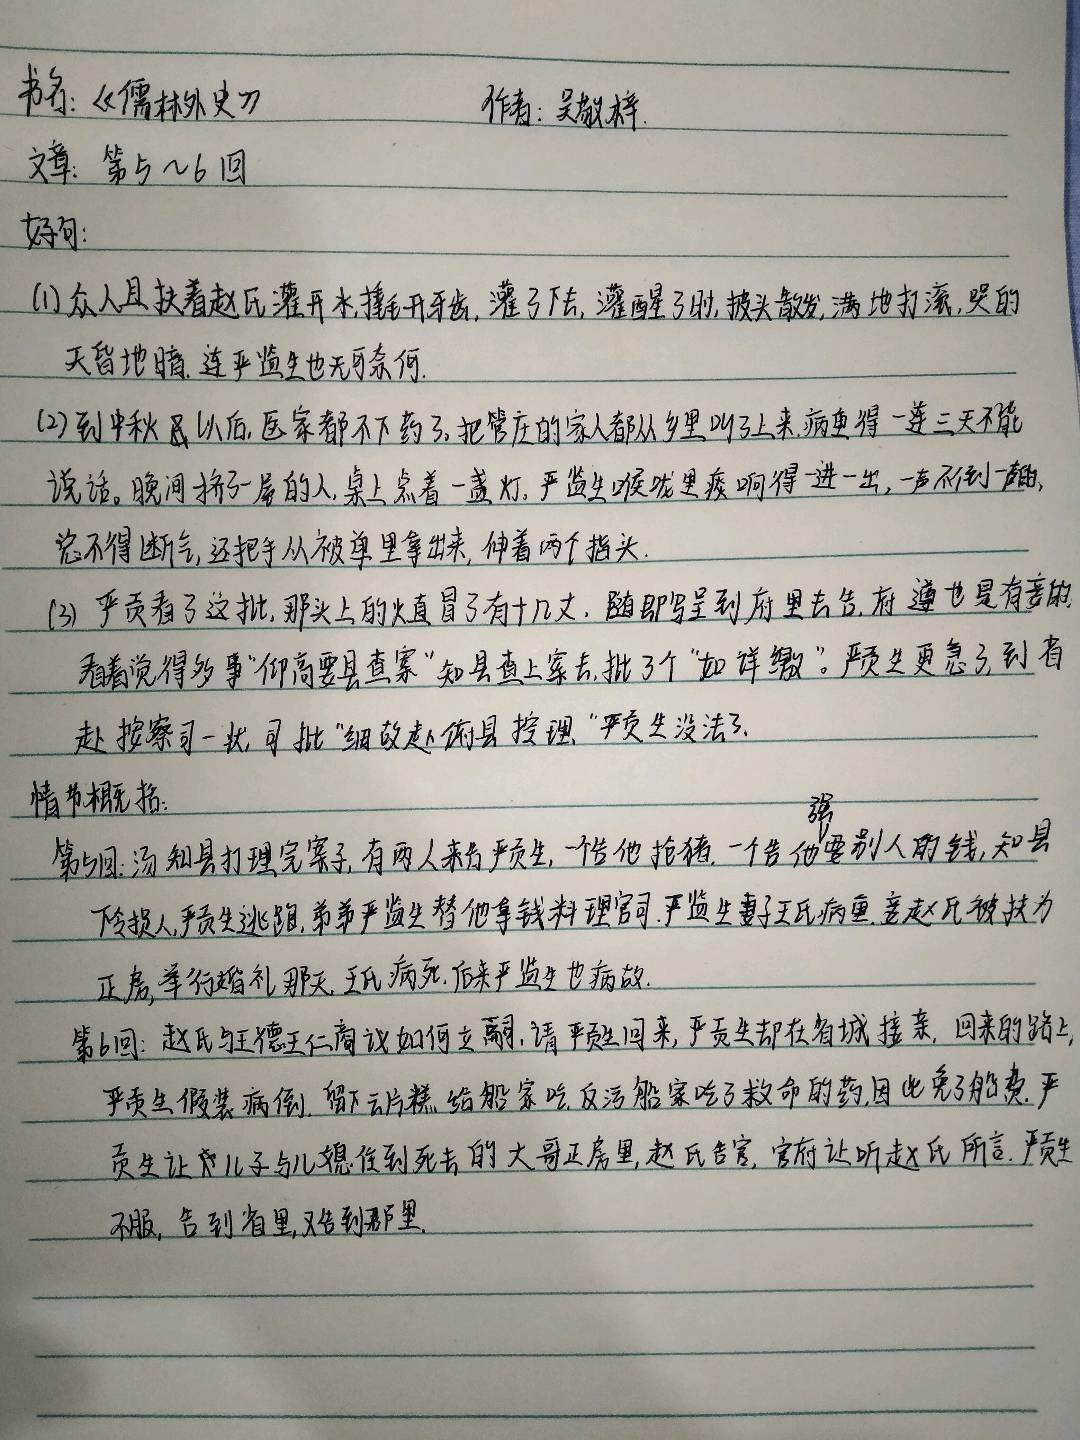 书名:《儒林外史》 作者:吴敬梓.
文章:第5~6回
好句:
(1)众人且扶着赵氏灌开水,撬开牙齿,灌了下去,灌醒了时,披头散发,满地打滚,哭的
天昏地暗.连严监生也无可奈何.
(2)到中秋以后,医家都不下药了,把管庄的家人都从乡里叫了上来,病重得一连三天不能
说话。晚间挤了一屋的人,桌上点着一盏灯.严监生喉咙里痰响得一进一出,一声不倒一声的,
总不得断气,还把手从被单里拿出来,伸着两个指头.
(3)严贡看了这批,那头上的火直冒了有十几丈.随即写呈到府里去告.府遵也是有妾的,
看着觉得多事"仰高要县查案"知县查上案去,批了个"如详缴"。严贡生更急了,到省
赴按察司一状,司批"细故赴府县控理"严贡生没法了.
情节概括:
第5回:汤知县打理完案子,有两人来告严贡生,一个告他抢猪.一个告他强要别人的钱,知县
下令损人,严贡生逃跑,弟弟严监生替他拿钱料理官司.严监生妻子王氏病重.妾赵氏被扶为
正房,举行婚礼那天,王氏病死.后来严监生也病故.
第6回:赵氏与王德王仁商议如何立嗣,请严贡生回来,严贡生却在省城接亲,回来的路上,
严贡生假装病倒.留下云片糕给船家吃,反污船家吃了救命的药,因此免了船费.严
贡生让儿子与儿媳住到死去的大哥正房里,赵氏告官,官府让听赵氏所言.严贡生
不服,告到省里,又告到那里.